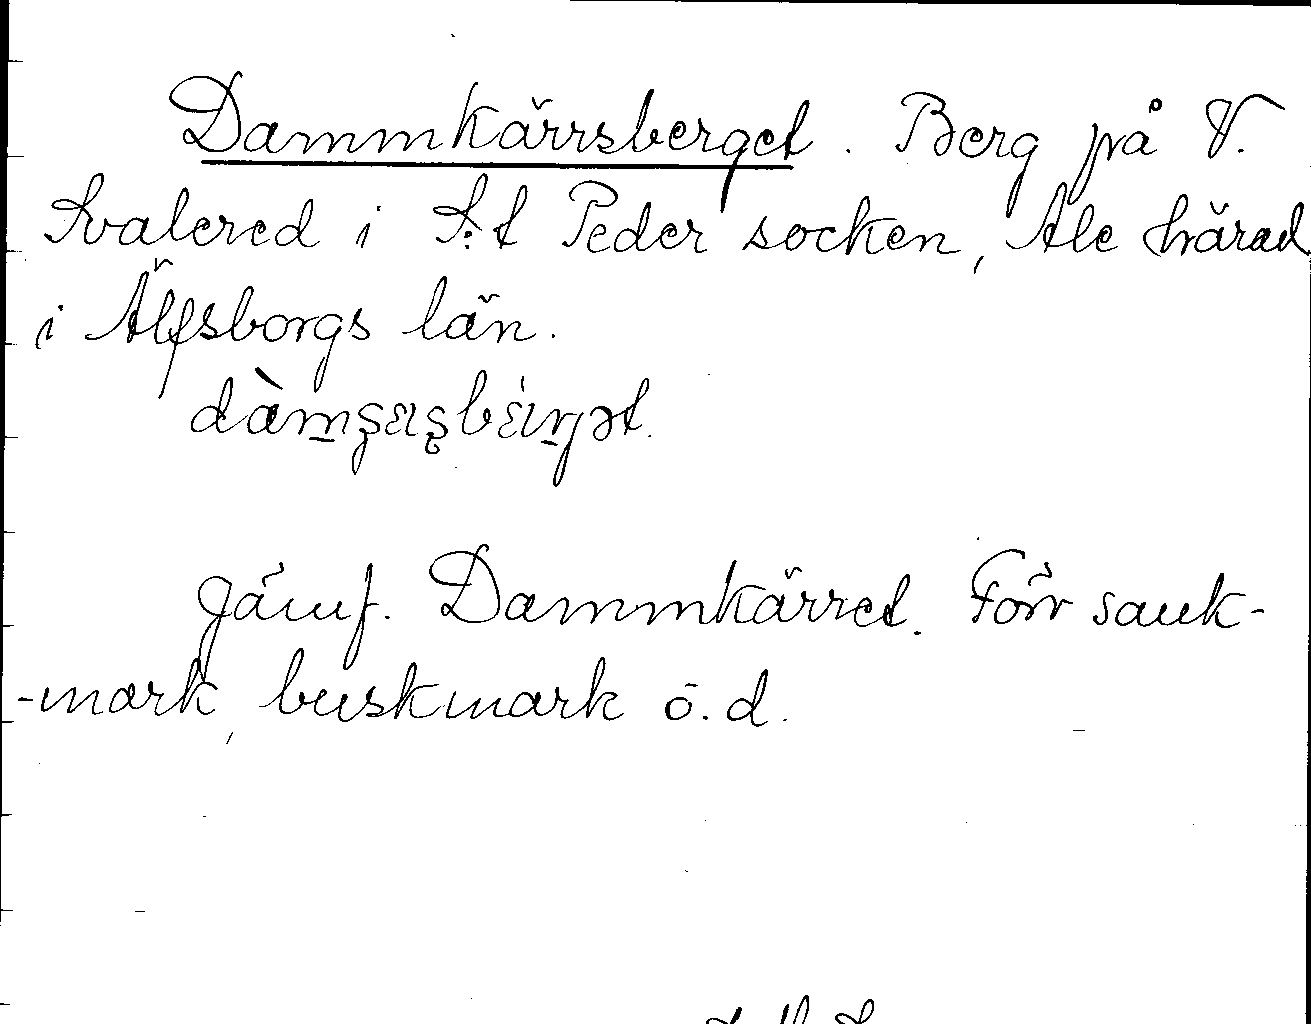 Dammkärrsberget. Berg på V.
Svalered i S:t Peder socken, Ale härad
i Älfsborgs län.
Jämf. Dammkärret. Förr sank-
-mark, buskmark o. d.